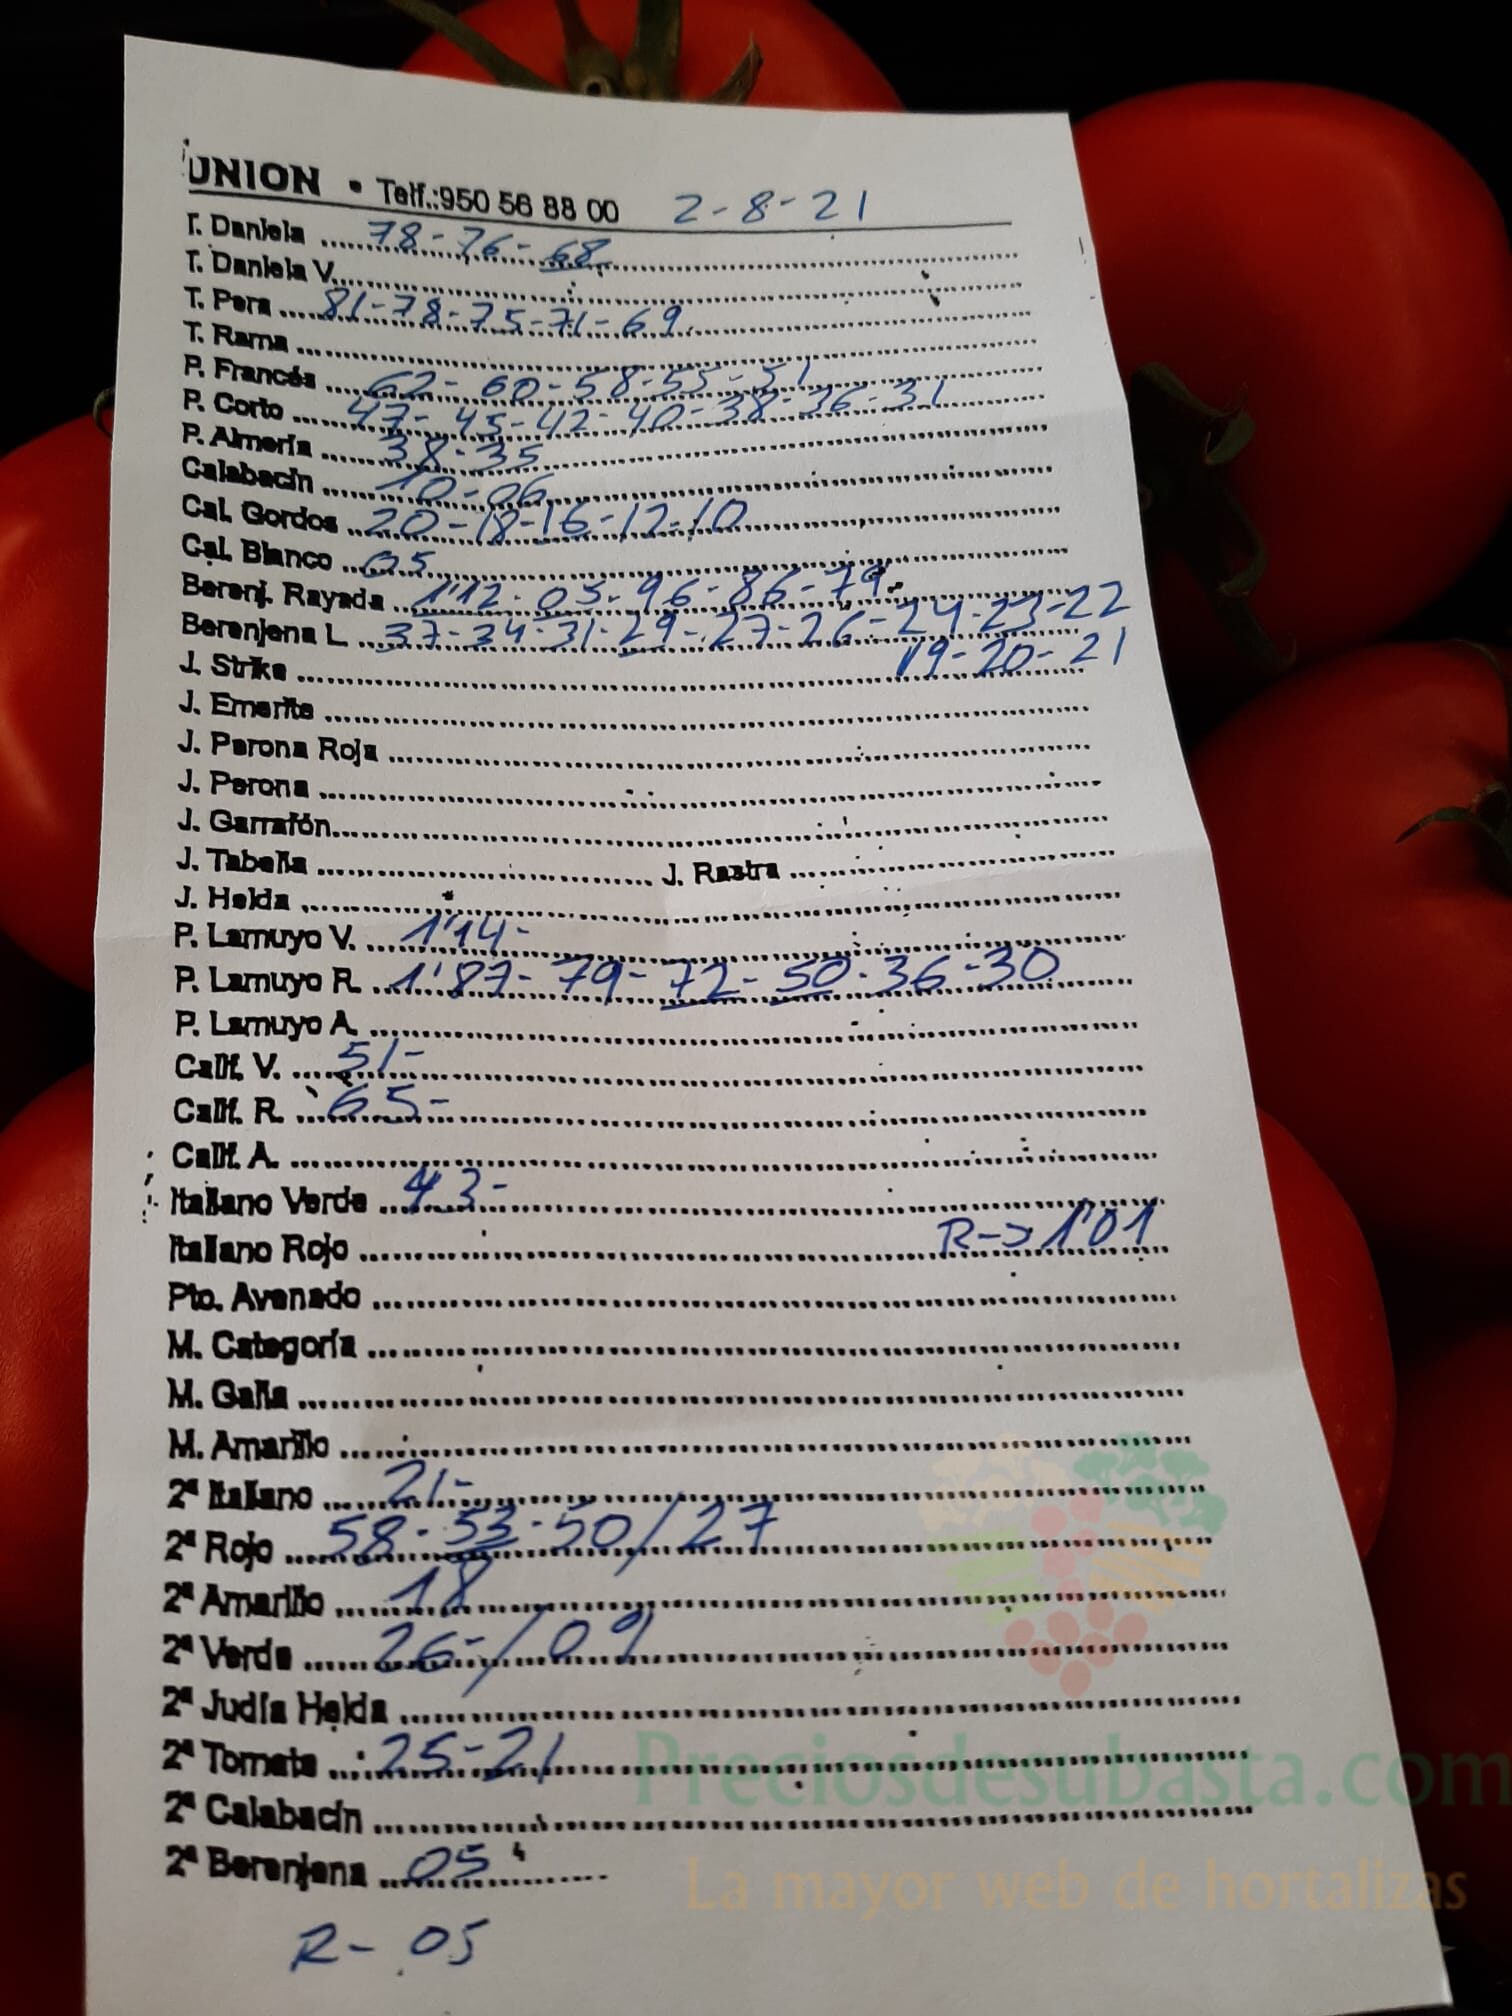 UNION • Telf.:950 56 88 00 2-8-21
T. Daniela ..... 78-76-68
T. Daniela V.....
T. Pera ..... 81-78-75-71-69
T. Rama .....
P. Francés ..... 62-60-58-55-51
P. Corto ..... 47-45-42-40-38-36-31
P. Almería ..... 38-35
Calabacín ..... 10-06
Cal. Gordos ..... 20-18-16-12-10
Cal. Blanco ..... 05
Berenj. Rayada ..... 1'12-03-96-86-79
Berenjena L ..... 37-34-31-29-27-26-24-23-22
19-20-21
J. Strike .....
J. Emerite .....
J. Perona Roja .....
J. Perona .....
J. Garrafón.....
J. Tabella ..... J. Rastra .....
J. Helda .....
P. Lamuyo V. ..... 1'14-
P. Lamuyo R. ..... 1'87-79-72-50-36-30
P. Lamuyo A. .....
Calif. V. ..... 51-
Calif. R. ..... 65-
Calif. A. .....
Italiano Verde ..... 43-
Italiano Rojo ..... R-> 1'01
Pto. Avenado .....
M. Categoría .....
M. Galia .....
M. Amarillo .....
2ª Italiano ..... 21-
2ª Rojo ..... 58-53-50/27
2ª Amarillo ..... 18
2ª Verde ..... 26-/09
2ª Judía Helda .....
2ª Tomate ..... 25-21
2ª Calabacín .....
2ª Berenjena ..... 05
R- 05
Preciosdesubasta.com
La mayor web de hortalizas